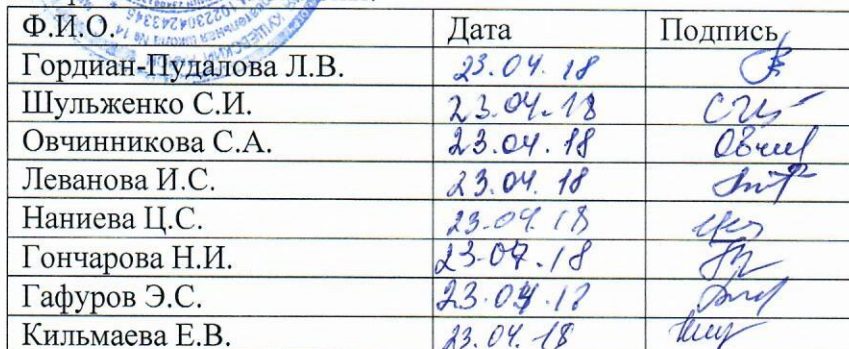 Ф.И.О. Дата Подпись
Гордиан-Пудалова Л.В. 23.04.18
Шульженко С.И. 23.04.18
Овчинникова С.А. 23.04.18
Леванова И.С. 23.04.18
Наниева Ц.С. 23.04.18
Гончарова Н.И. 23.04.18
Гафуров Э.С. 23.04.18
Кильмаева Е.В. 23.04.18